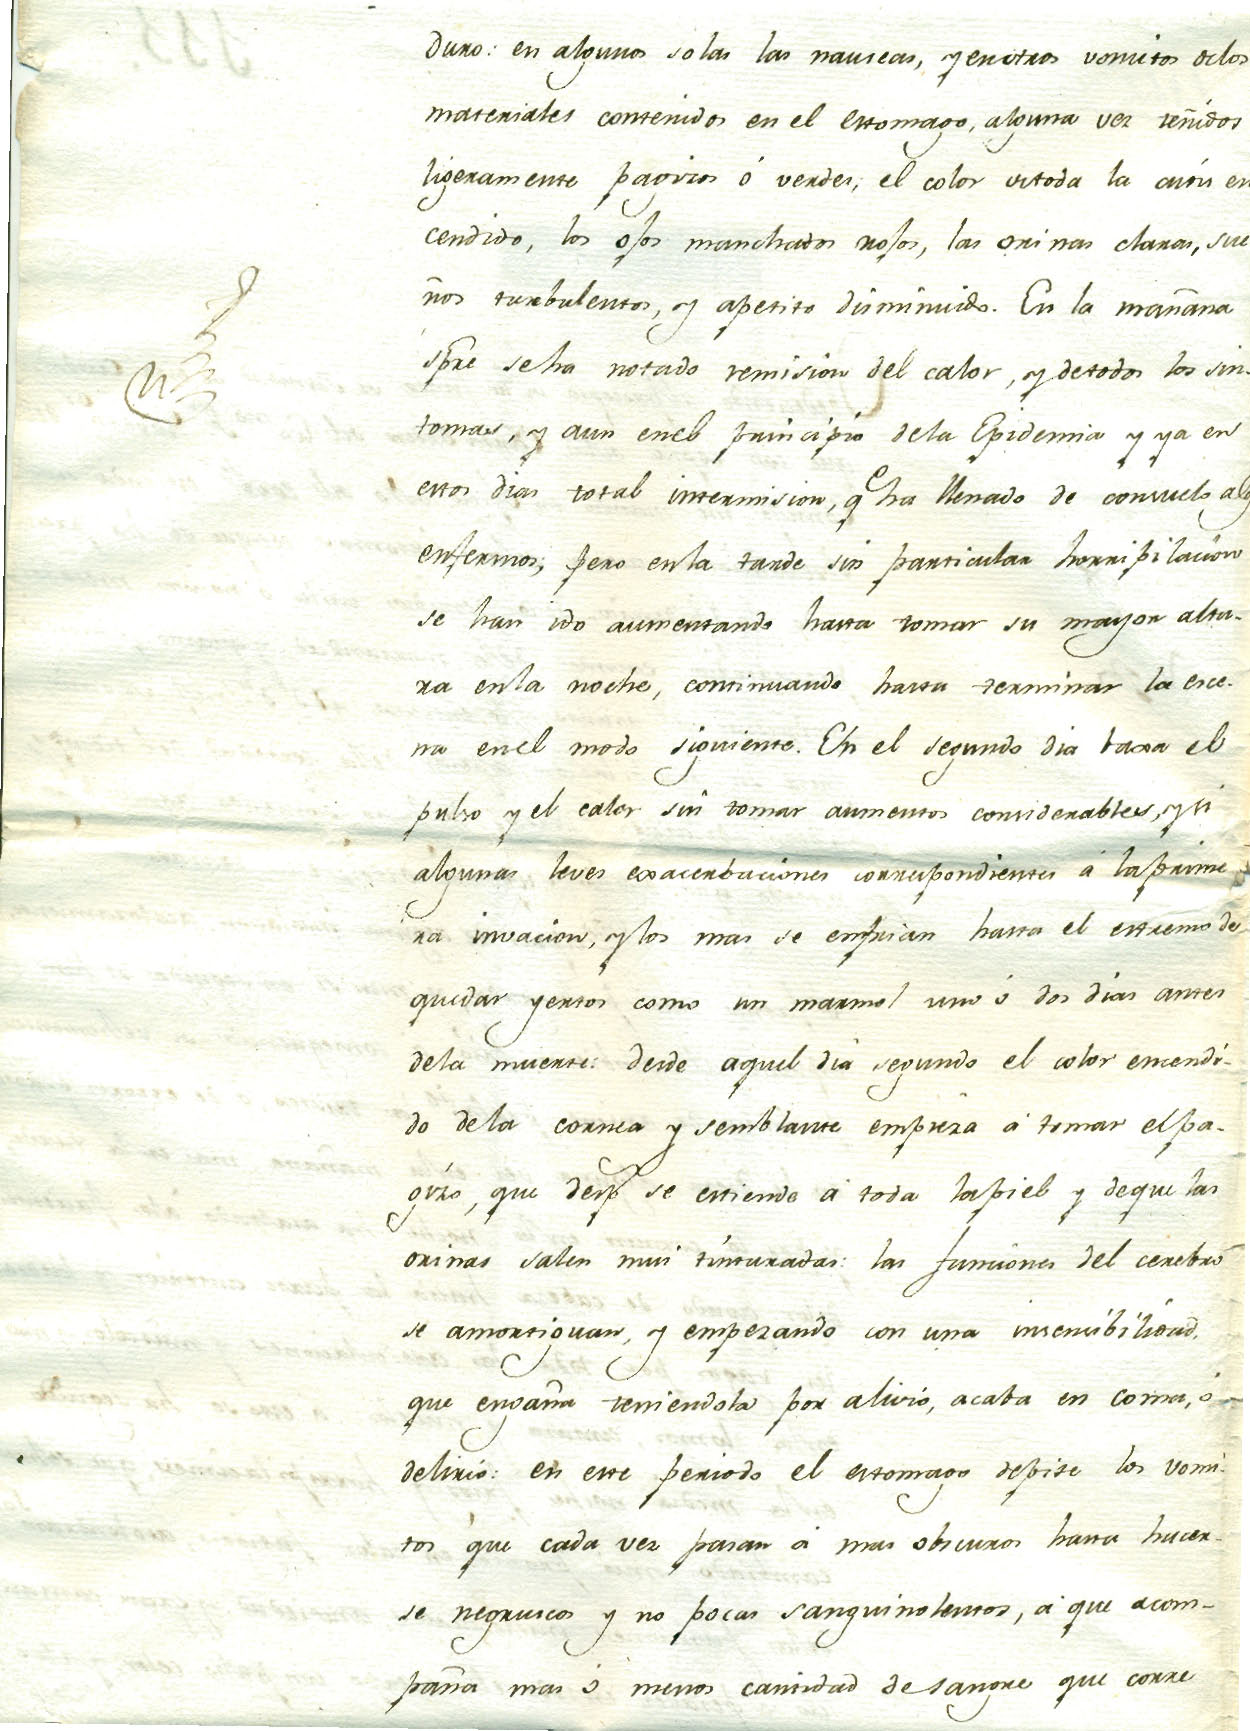 duro: en algunos solas las nauseas, y en otros vomitos de los
materiales contenidos en el estomago, alguna vez teñidos
ligeramente pagizos ó verdes, el color de toda la cutis en
cendido, los ojos manchados rojos, las orinas claras, sue
ños turbulentos, y apetito disminuido. En la mañana
spre se ha notado remision del calor, y de todos los sin-
tomas, y aun en el principio de la Epidemia y ya en
estos dias total intermision, qe ha llenado de consuelo alg
enfermos; pero en la tarde sin particular horripilacion
se han ido aumentando hasta tomar su mayor altu-
ra en la noche, continuando hasta terminar la esce-
na en el modo siguiente. En el segundo dia baxa el
pulso y el calor sin tomar aumentos considerables, y si
algunas leves exacerbaciones correspondientes á la prime
ra invacion, y los mas se enfrian hasta el estremo de
quedar yertos como un marmol uno ó dos dias antes
de la muerte: desde aquel dia segundo el color encendi-
do de la cornea y semblante empieza á tomar el pa-
gizo, que desp se estiende á toda la piel y de que las
orinas salen mui tinturadas: las funciones del cerebro
se amortiguan, y empezando con una insensibilidad,
que engaña teniendola por alivio, acaba en coma, ó
delirio: en este periodo el estomago repite los vomi-
tos que cada vez pasan á mas obscuros hasta hacer-
se negruscos y no pocas sanguinolentos, á que acom-
paña mas ó menos cantidad de sangre que corre